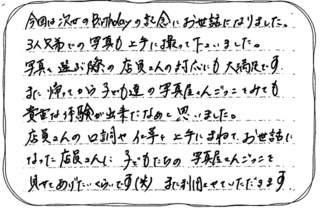 今回は次女のBirthdayの記念にお世話になりました。
3人兄弟での写真も上手に撮って下さいました。
写真を選ぶ際の店員さんの対応にも大満足です
また帰ってから子ども達の写真屋さんごっこをみても
貴重な体験が出来たなぁと思いました。
店員さんの口調や仕草を上手にまねて、お世話に
なった店員さんに子どもたちの写真屋さんごっこを
見せてあげたいくらいです(笑) また利用させていただきます